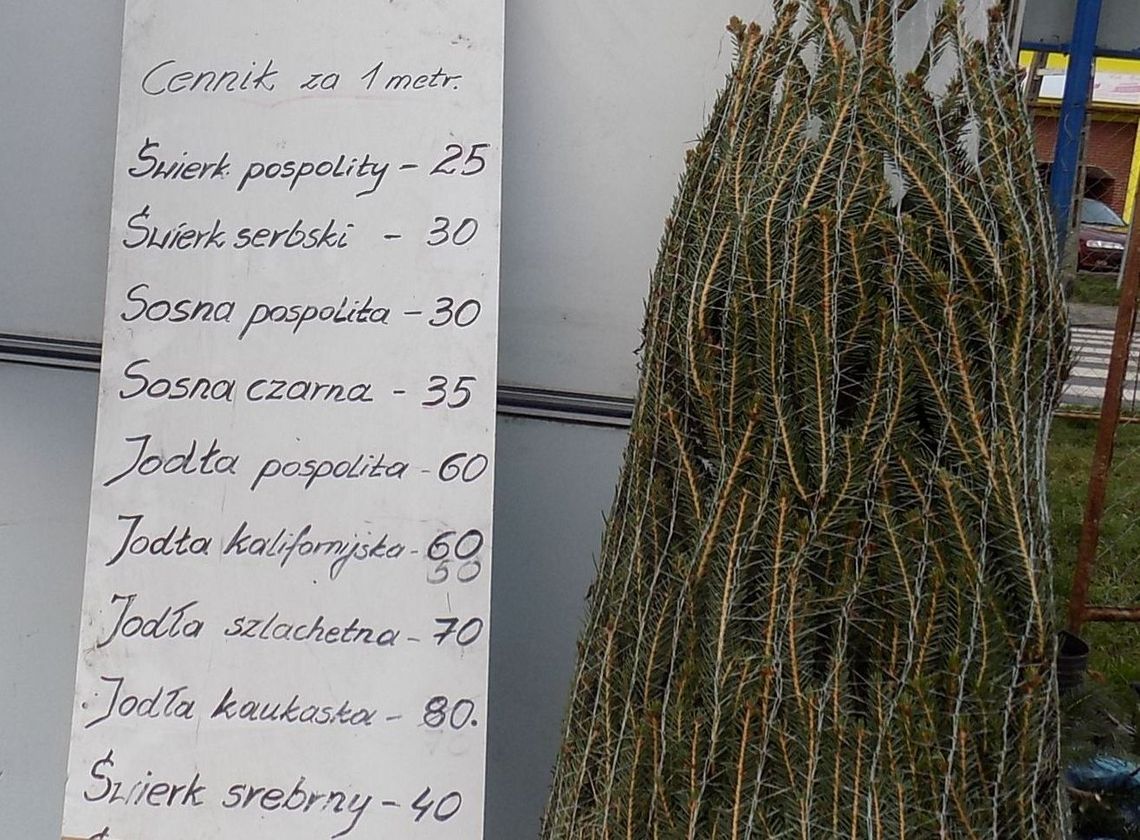 Cennik za 1 metr.
Świerk pospolity - 25
Świerk serbski - 30
Sosna pospolita - 30
Sosna czarna - 35
Jodła pospolita - 60
Jodła kalifornijska - 60
50
Jodła szlachetna - 70
Jodła kaukaska - 80.
Świerk srebrny - 40